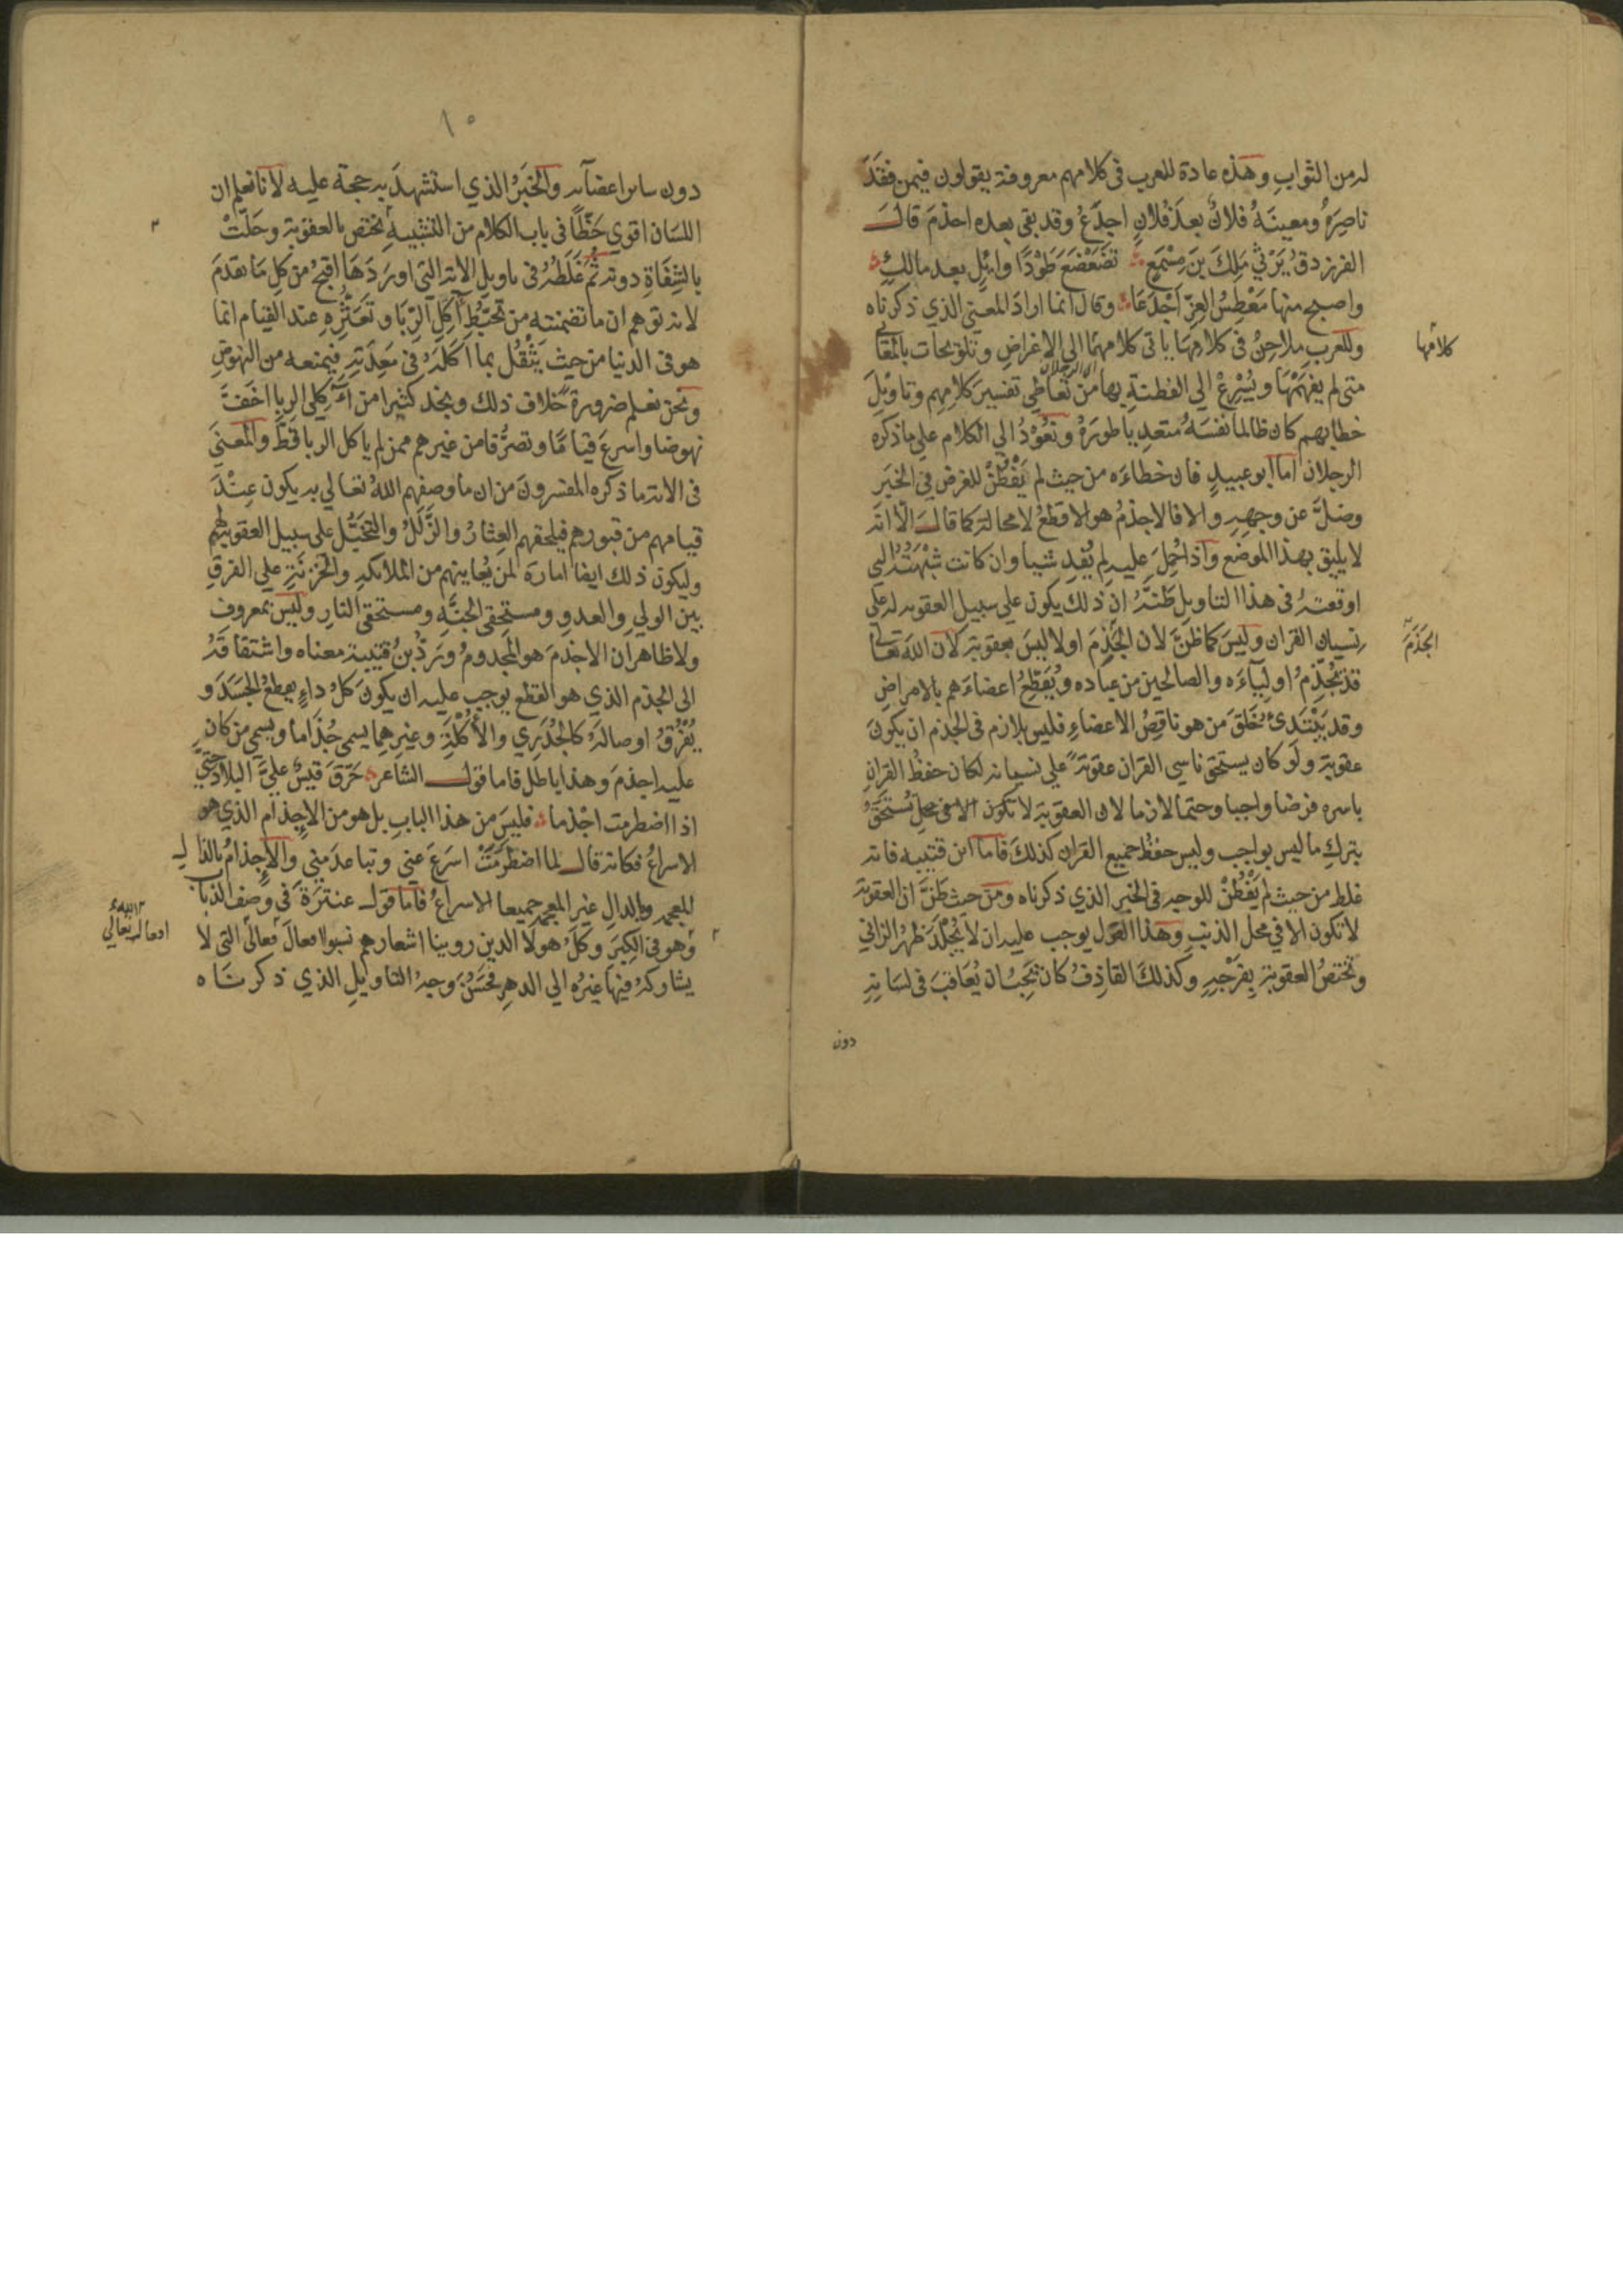 له من الثواب وهذه عادة للعرب فى كلامهم معروفة يقولون فيمن فقدَ
ناصِرَهُ ومعينَهُ فلانٌ بعدَ فلانٍ اجدَعُ وقد بقى بعده اجذمَ قالَ
الفرزدقُ يَرْثى مَلِكَ بنَ مِسْمَعٍ تَضَعْضَعَ طَوْدًا وائِلٍ بعد مالكٍ
واصبح منها مَعْطِسُ العِزّ اَجْدَعَا وقال انما ارادَ المعنى الذي ذكرناه
وللعربِ ملاحِنُ فى كلامِهَا باقى كلامهما الى الاغراضِ وتلويحات بالمعانى
متى لم يفهَمْهَا ويُسْرِعْ الي الفطنةِ بها من تعاطِى تفسيرَ كلامِهِم وتاويلَ
خطابهم كان ظالما نفسَهُ متعديا طورَهُ ونعُوْدُ الي الكلام علي ما ذكره
الرجلان اما ابو عبيدٍ فان خطاءَه من حيث لم يَفْطُنْ للغرض فِى الخبَرِ
وضلَّ عن وجهِهِ والا فالاجذمُ هو الاقطعُ لا محالة كما قالَ الّا انّه
لا يليق بهذا الموضع واذا حُمِلَ عليه لم يُفِد شيا وان كانت شبْهَتُهُ التى
اوقعتهُ فى هذا التاويل ظنَّهُ انّ ذلك يكون علي سبيل العقوبه له على
نسيانِ القران وليسَ كما ظنَّ لان الجَذْمَ اولا ليسَ بعقوبة لان اللهَ تعالى
قد يُجْذِمُ اوليآءَه والصالحين من عباده ويُقَطِّعُ اعضاءَهم بالامراضِ
وقد يَبْتَدئُ خَلقَ من هو ناقِصُ الاعضاءِ فليس بلازم فى الجذم ان يكونَ
عقوبةً ولَو كان يستحق ناسي القران عقوبَةً علي نسيانه لكان حفظُ القرانِ
باسره فرضا واجبا وحتما لازما لان العقوبة لا تكون الا فى محل تُسْتَحَقُّ
بتركِ ما ليس بواجب وليس حفظُ جميع القران كذلكَ فاما ابن قتيبه فانه
غلط من حيث لم يَفْطُنْ للوجه فى الخبر الذي ذكرناه ومن حيث ظنّ ان العقوبة
لا تكون الا في محل الذنبِ وهذا القول يوجب عليه ان لا يُجْلَدَ ظهرُ الزاني
وتختصُ العقوبة بِفَرْجِهِ وكذلكَ القاذِفُ كان يَجِبُ ان يُعَاقَبَ فى لسَانِهِ
دون
كلامُها
الجَذْمَ
١٠
دون سائر اعضآئه والخبَرُ الذي استشهدَ به حجة عليه لانا نعلم ان
اللسَان اقوي حَظًّا فى باب الكلام من التشبيه تختص بالعقوبة وحَلّتْ
بالشِفَاةِ دونه ثُمّ غَلَطُهُ فى تاويلِ الآية التى اورَدَهَا اقبحُ من كلِ مَا تقدمَ
لانه توهم ان ما تضمنته من تخبّطِ آكِلِ الرّبَا وتعَثُّرِهِ عند القيام انما
هو فى الدنيا من حيث يَثْقُل بما اَكَلَهُ فى مَعِدَتِهِ فيمنعه من النهوضِ
ونحن نعلم ضرورةً خلاف ذلك ونجد كثيرا من آكِلى الرِبا اخَفّ
نهوضا واسرعَ قيامًا وتصرُّفا من غيرهم ممن لم ياكل الربا قطُ والمعنَى
فى الاية ما ذكره المفسرونَ من ان ما وصفهم اللهُ تعالي به يكون عِنْدَ
قيامهم من قبورهم فيلحقهم العِثارُ والزَّلَلُ والتخَبُّل على سبيل العقوبةِ لهم
وليكون ذلك ايضا امارَة لمن يُعاينهم من الملائكةِ والخَزَنَةِ علي الفرقِ
بين الولي والعدوِ ومستحِقى الجنَّهِ ومستحقى النارِ وليس بمعروفٍ
ولا ظاهر ان الاجذمَ هو المجدومُ ورَدُّ بنُ قتيبة معناه واشتقاقهُ
الى الجذم الذي هو القطع يوجب عليه ان يكونَ كلُ داءٍ يقطعُ الجَسَدَ و
يُفَرِّقُ اوصالهَ كالجُدَرِي والأكْلَةِ وغيرِهما يسمى جُذَاماً ويسمى من كان
عليه اجذمَ وهذا باطل فاما قول الشاعر حَرّقَ قيسٌ عليَّ البلادَ حتى
اذا اضطرمت اجْذما فليسَ من هذا البابِ بل هو من الاِجذام الذي هو
الاسراعُ فكانه قال لما اضطَرَمَتْ اسرَعَ عنى وتباعدَ مِنى والاِجذامُ بالذال
المعجمه وبالدال غير المعجمه جميعا الاسراعُ فاما قول عنترةَ فى وصفِ الذباب
وهو فى الكِبَر وكلُ هولا الدين روينا اشعارهم نسبوا افعالَ تعالى التى لا
يشاركهُ فيها غيرُه الى الدهرِ فحَسُنَ وجهُ التاويلِ الذي ذكرناه
افعاله تعالي